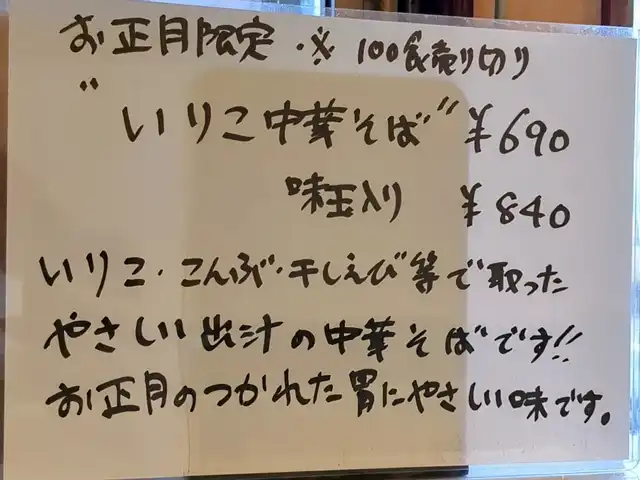 お正月限定・※ 100食売り切り
"いりこ中華そば" ¥690
味玉入り ¥840
いりこ・こんぶ・干しえび等で取った
やさしい出汁の中華そばです!!
お正月のつかれた胃にやさしい味です。